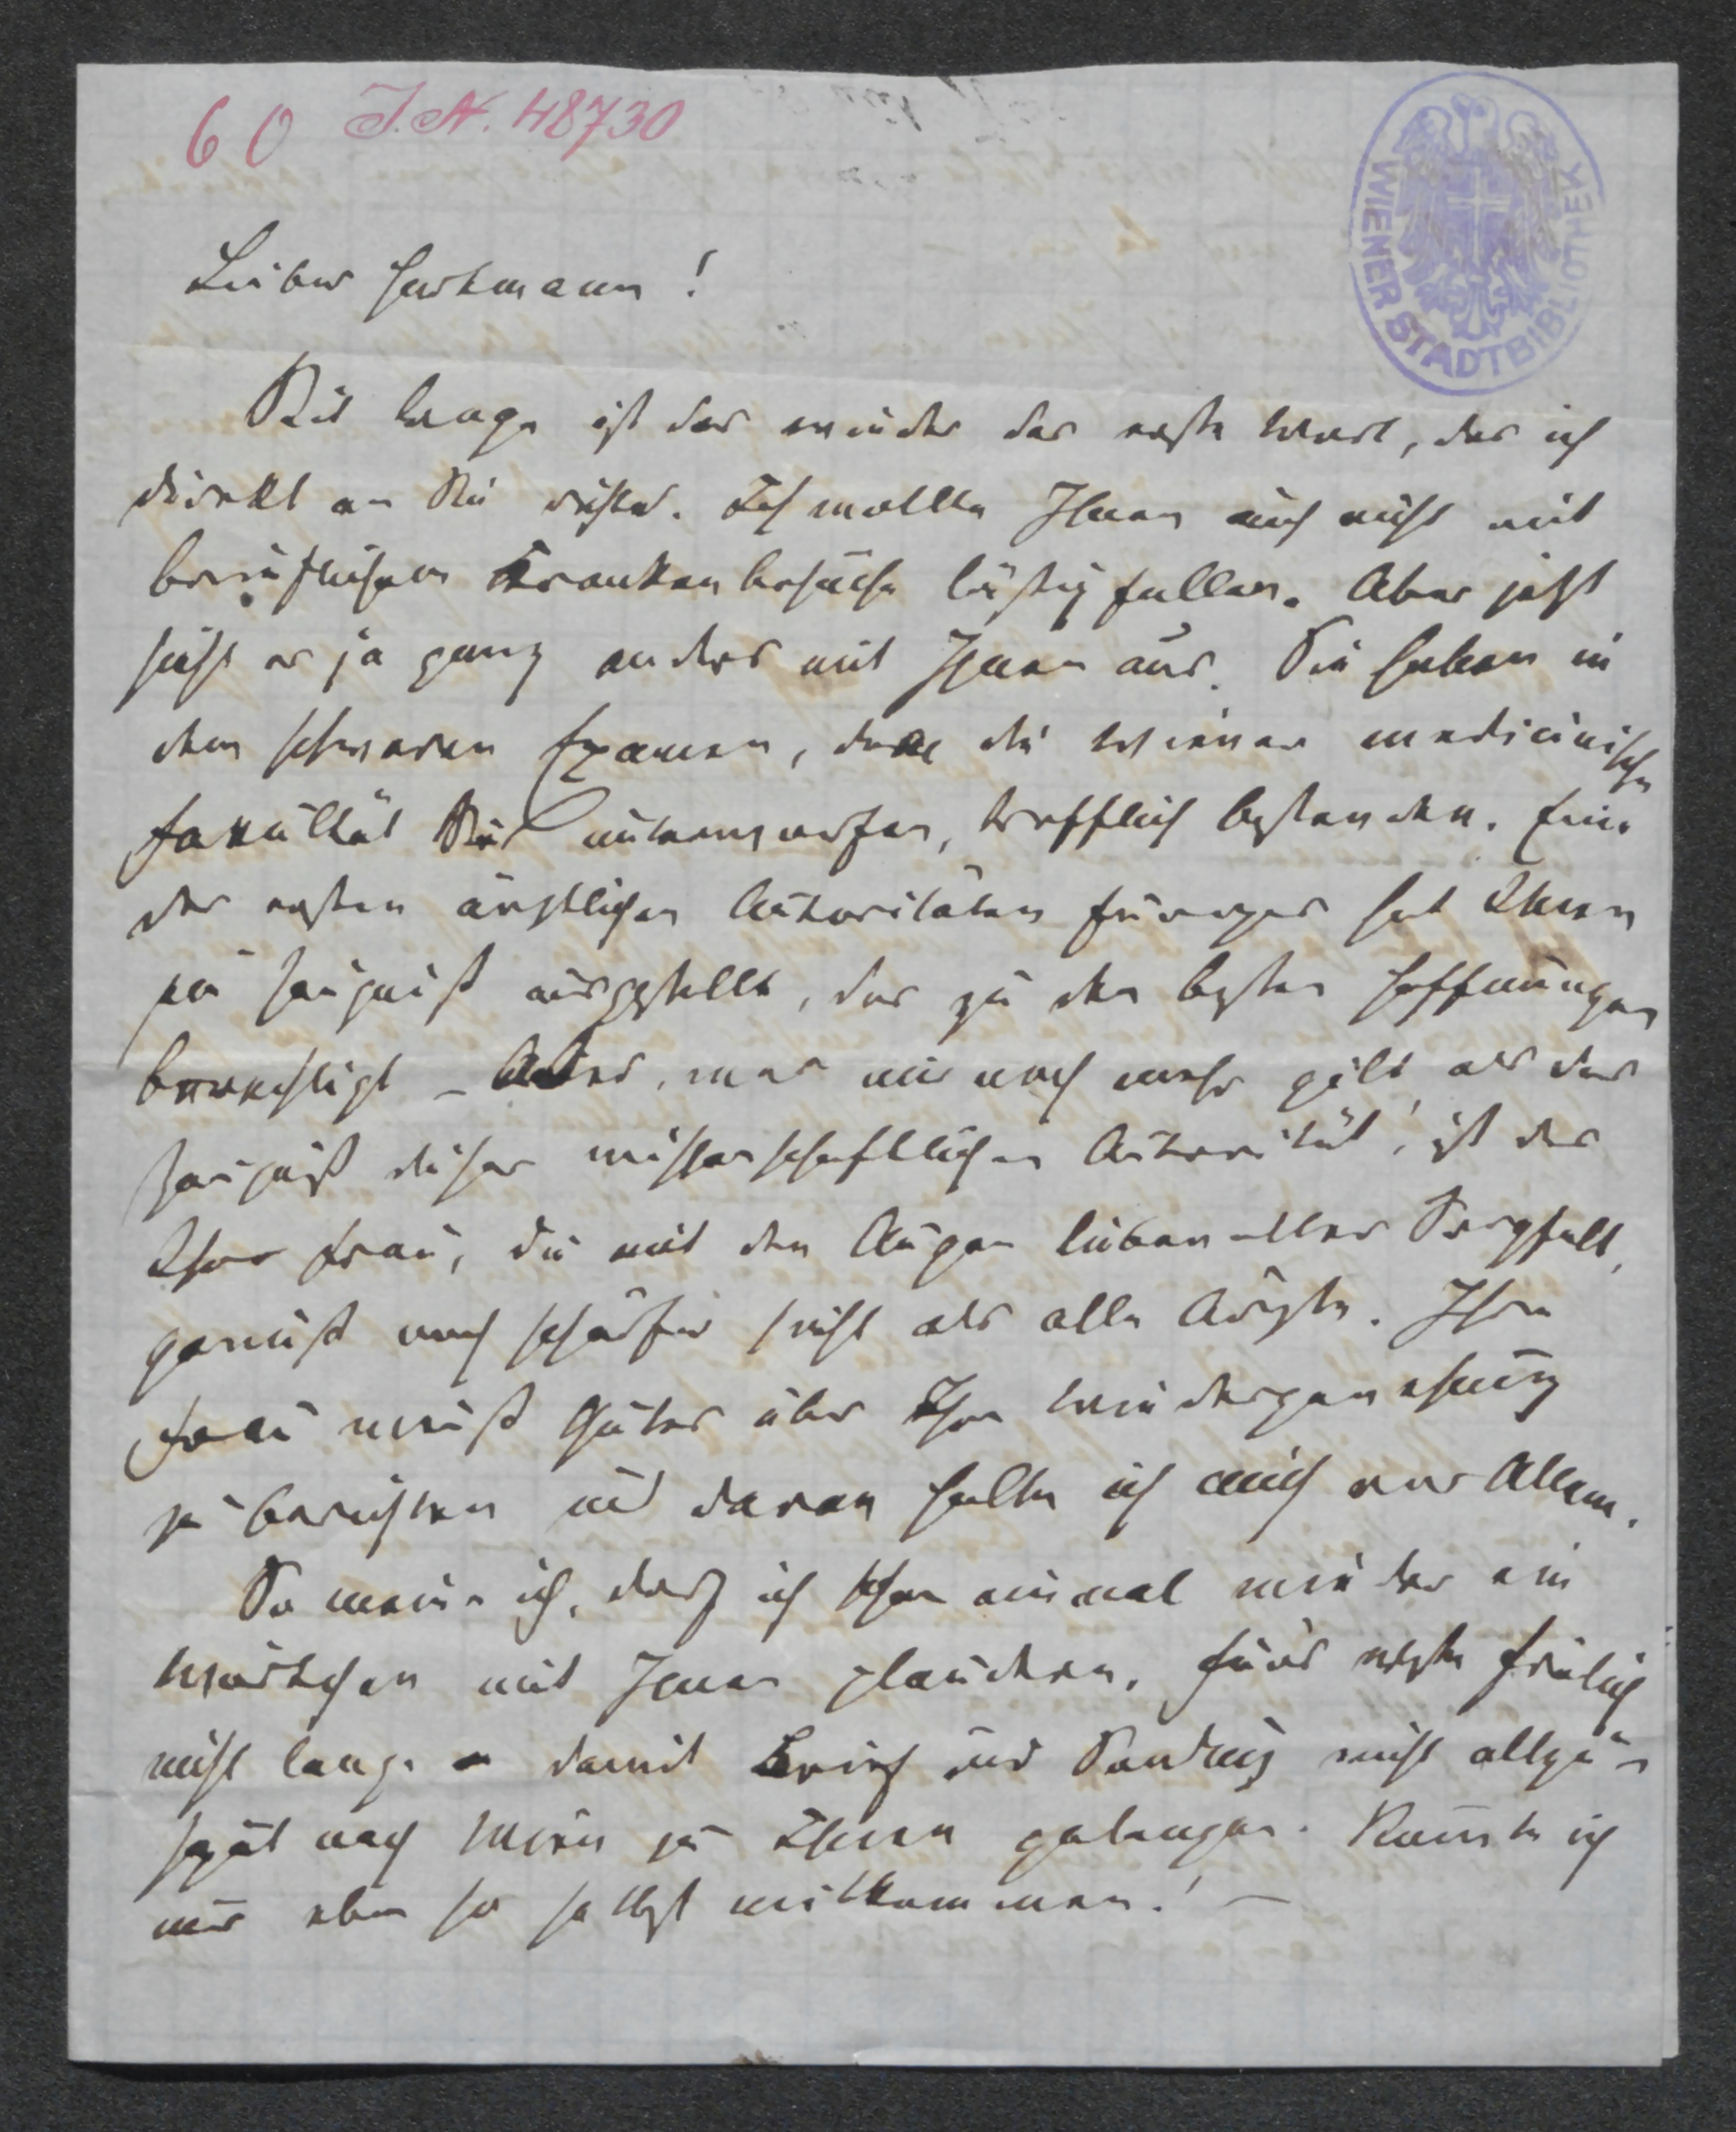 60 J.N. 48730
WIENER STADTBIBLIOTHEK
Lieber Hartmann!
Seit lange ist das wieder das erste Wort, das ich
direkt an Sie richte. Ich wollte Ihnen auch nicht mit
brieflichem Krankenbesuche lästig fallen. Aber jetzt
sieht es ja ganz anders mit Ihnen aus. Sie haben in
dem schweren Examen, dem die Wiener medicinische
Fakultät Sie unterworfen, trefflich bestanden. Eine
der ersten ärztlichen Autoritäten Europas hat Ihnen
ja Zeugniß ausgestellt, das zu den besten Hoffnungen
berechtigt – Aber, was mir noch mehr gilt als das
Zeugniß dieser wissenschaftlichen Autorität, ist das
Ihrer Frau, die mit den Augen liebevoller Sorgfalt,
gewiß noch schärfer sieht als alle Ärzte. Ihre
Frau weiß Gutes über Ihre Wiedergenesung
zu berichten und daran halte ich mich vor Allem.
So meine ich, darf ich schon einmal wieder ein
Wörtchen mit Ihnen plaudern, fürs erste freilich
nicht lange – damit Brief und Sendung nicht allzu
spät nach Wien zu Ihnen gelangen. Könnte ich
nur eben so selbst mitkommen! –